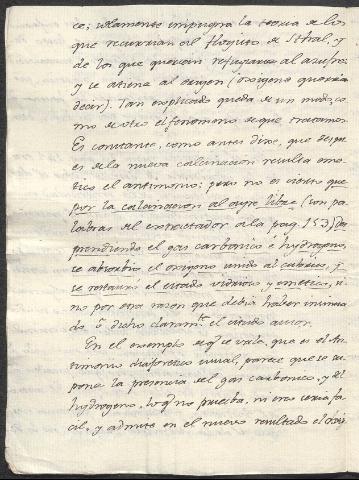 ce; solamente impugna la teoria de los
que recurrian al flogisto de Sthal, y
de los que querian refugiarse al azufre
y se atiene al oxigen (oxígeno querria
decir). Tan explicado queda de un modo, co
mo de otro el fenomeno de que tratamos.
Es constante, como antes dixe, que despu
es de la nueva calcinacion resulta eme-
tico el antimonio; pero no es cierto que
por la calcinacion al ayre libre (son pa-
labras del extractador a la pag. 153) des
prendiendo el gas carbonico é hydrogeno,
se absorbia el oxigeno unido al y
se restaura el estado vidrioso y emetico, si
no por otra razon que debia haber insinua
do, ó dicho claramte. el citado autor.
En el exemplo de q. se vale, que es el An
timonio diaforetico usual, parece que se su
pone la presencia del gas carbonico, y del
hydrogeno, lo q. no prueba, ni era cosa fa
cil, y admite en el nuevo resultado el oxig